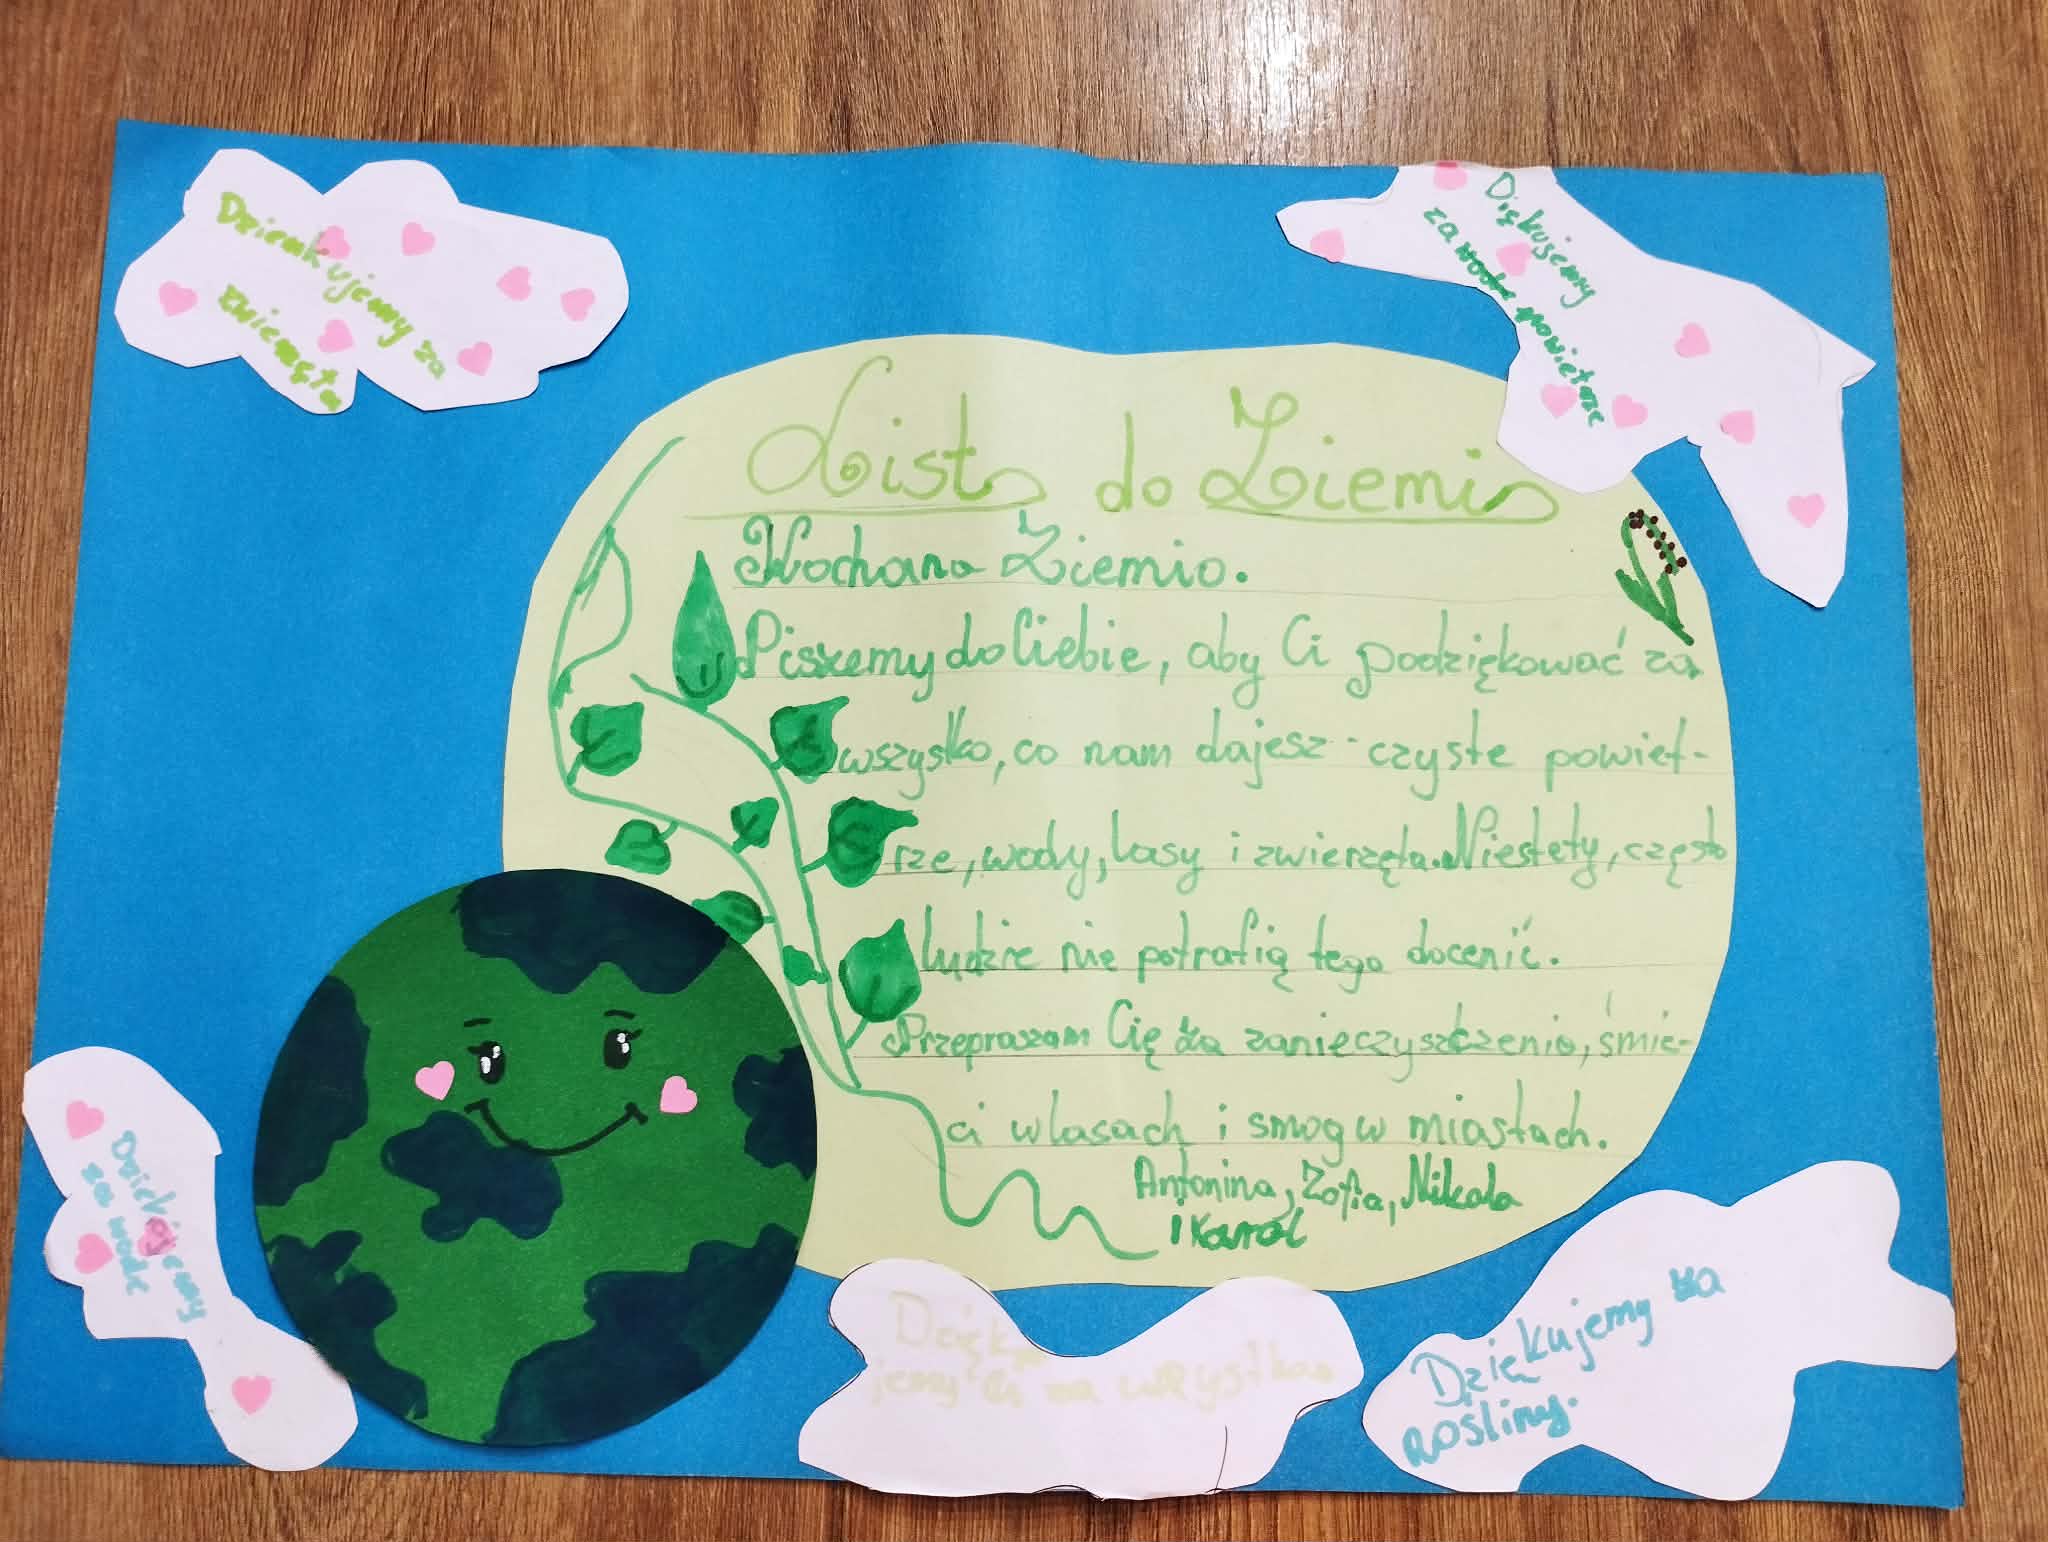 Dziemkujemy za
zwiemęta
Dziękujemy
za powietrze
List do Ziemi
Kochana Ziemio.
Piszemy do Ciebie, aby Ci podziękować za
wszystko, co nam dajesz - czyste powiet-
rze, wody, lasy i zwierzęta. Niestety, często
ludzie nie potrafią tego docenić.
Przepraszam Cię za zanieczyszczenia, śmie-
ci w lasach i smog w miastach.
Antonina, Zofia, Nikola
i Karol
Dziekujemy
za wode
Dzięku
jemy Ci za wszystko
Dziękujemy za
Rośliny.